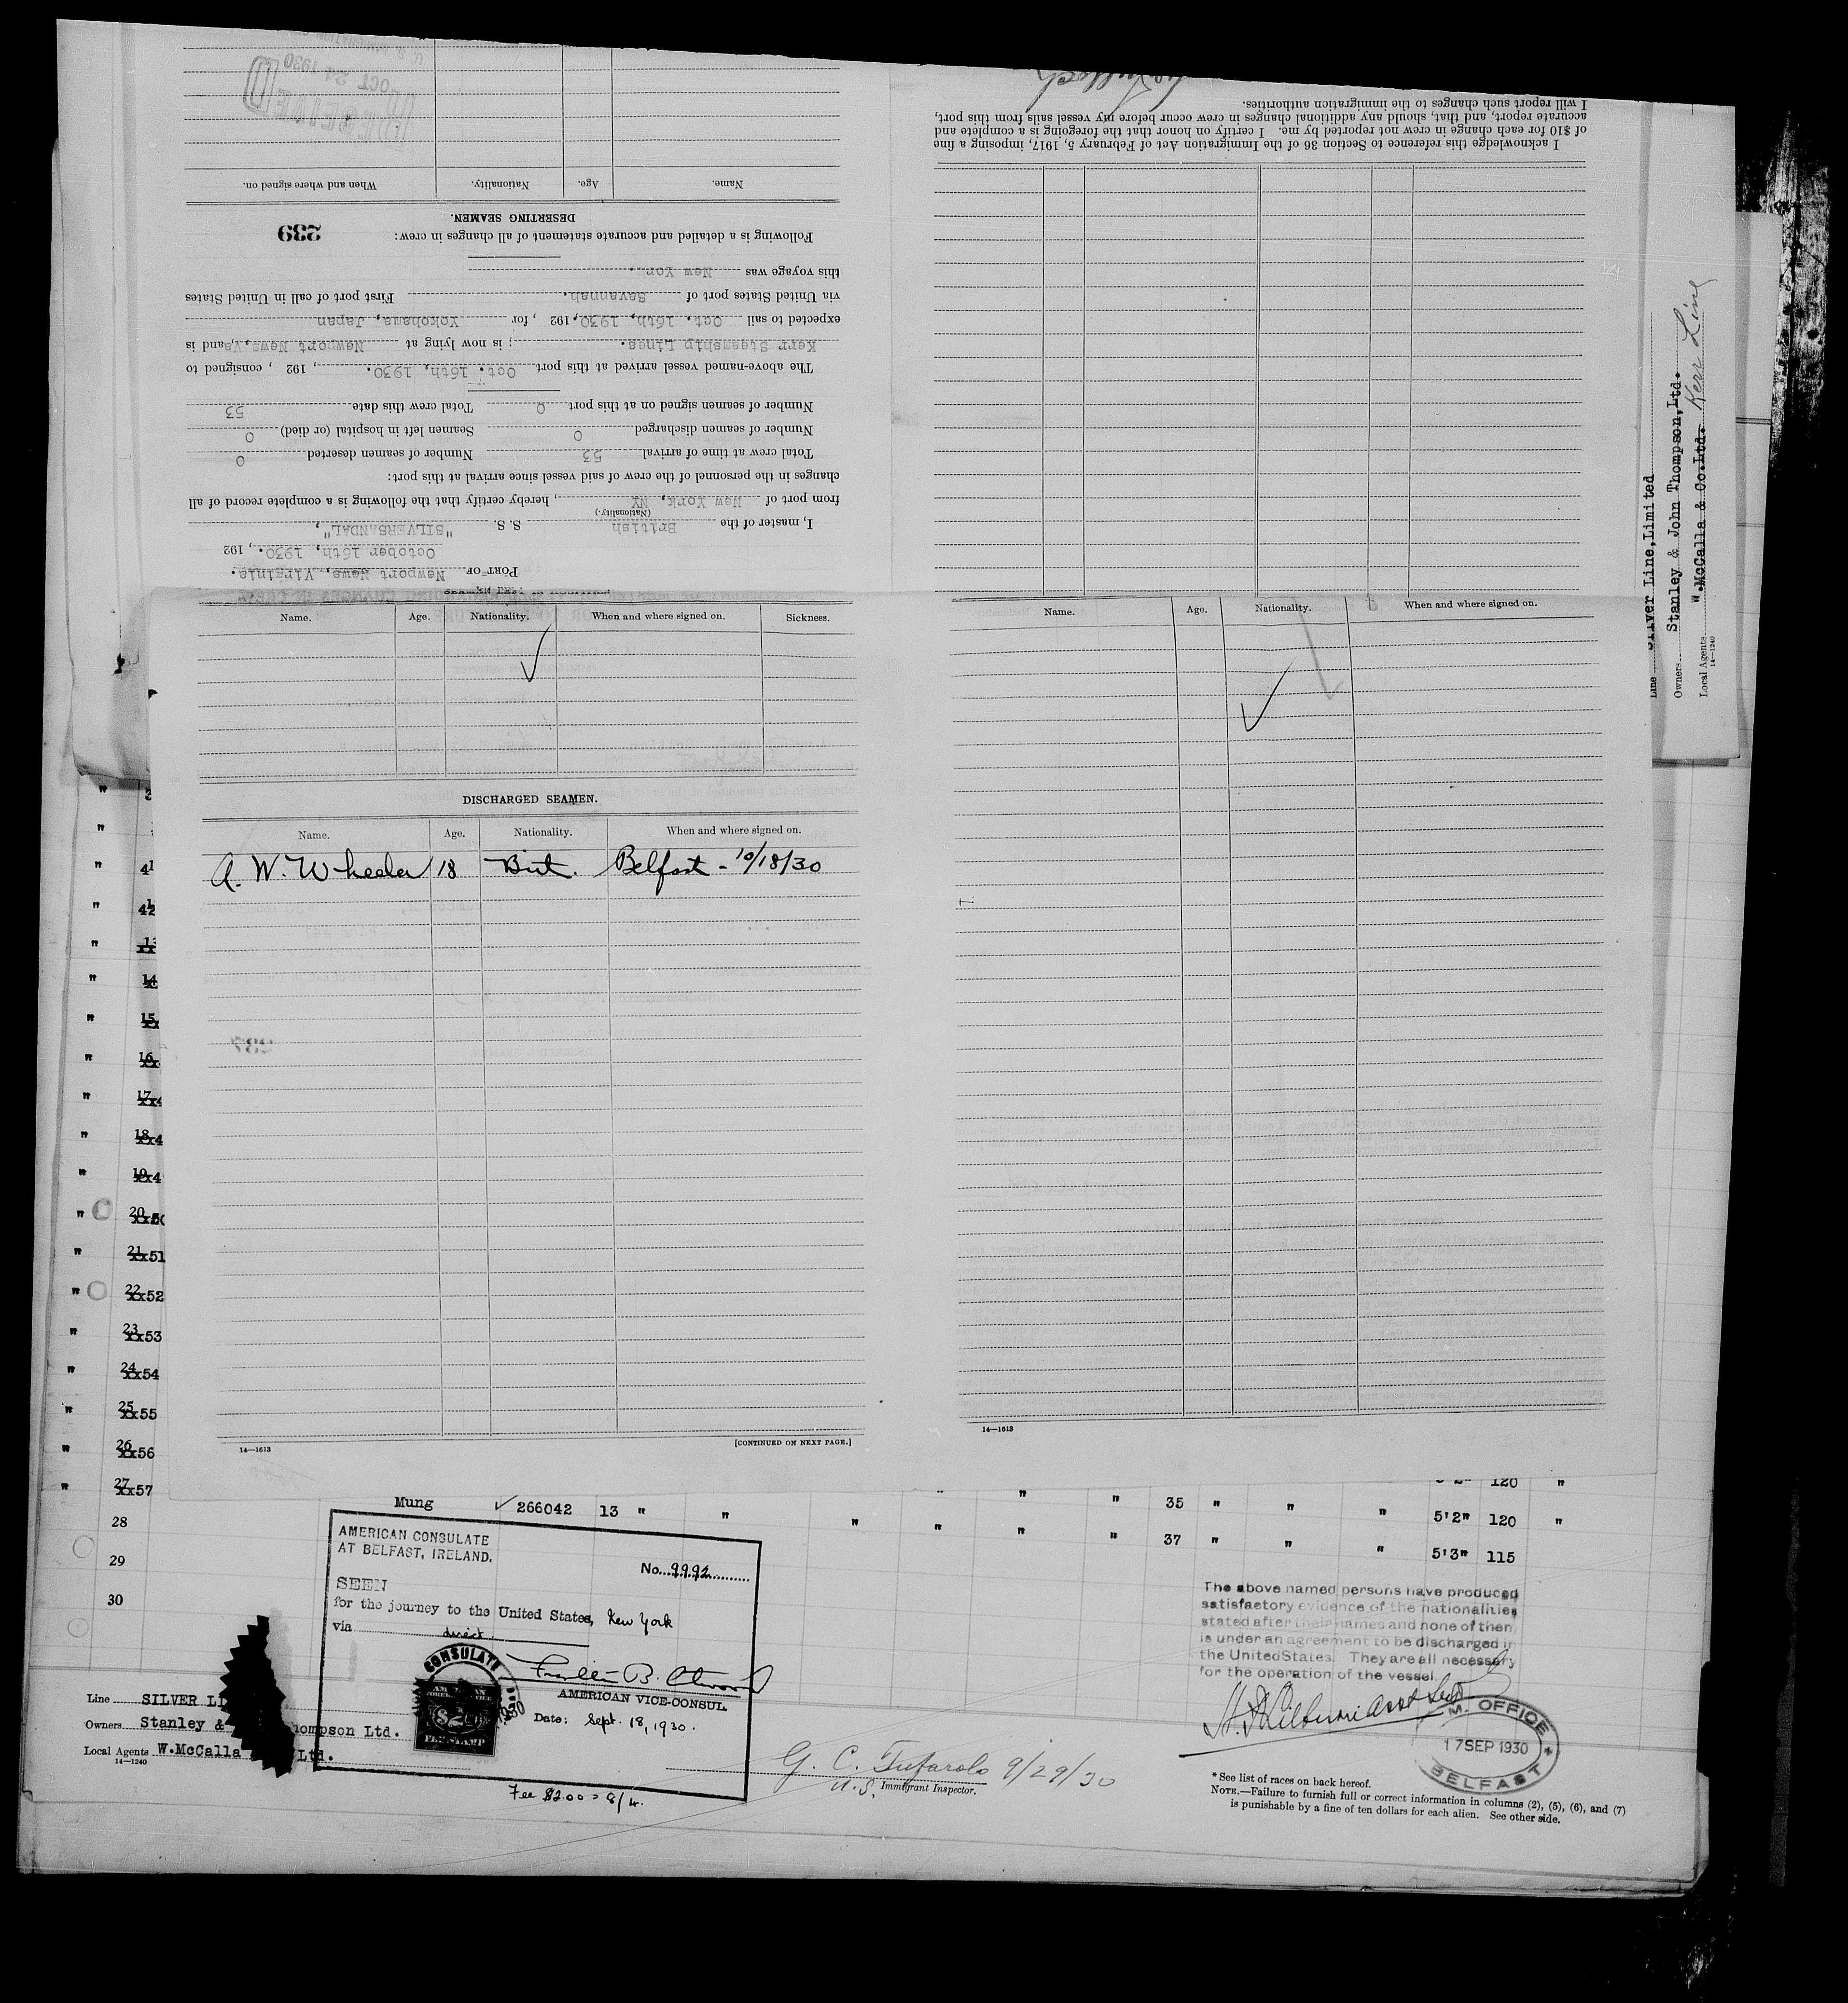 U. S. IMMIGRATION
RECEIVED
OCT 24 1930
I acknowledge this reference to Section 36 of the Immigration Act of February 5, 1917, imposing a fine
of $10 for each change in crew not reported by me. I certify on honor that the foregoing is a complete and
accurate report, and that, should any additional changes in crew occur before my vessel sails from this port,
I will report such changes to the immigration authorities.
PORT OF Newport News, Virginia.
October 16th, 1930., 192
I, master of the British S. S. "SILVERSANDAL",
(Nationality.)
from port of New York, NY, hereby certify that the following is a complete record of all
changes in the personnel of the crew of said vessel since arrival at this port:
Total crew at time of arrival 53 Number of seamen deserted 0
Number of seamen discharged 0 Seamen left in hospital (or died) 0
Number of seamen signed on at this port 0 Total crew this date 53
The above-named vessel arrived at this port Oct. 16th, 1930., 192 , consigned to
Kerr Steamship Lines. ; is now lying at Newport News, Va, and is
expected to sail Oct. 16th, 1930, 192 , for Yokohama, Japan
via United States port of Savannah. First port of call in United States
this voyage was New Yor .
Following is a detailed and accurate statement of all changes in crew:
239
DESERTING SEAMEN.
Name. Age. Nationality. When and where signed on.
Name. Age. Nationality. When and where signed on. Sickness.
DISCHARGED SEAMEN.
Name. Age. Nationality. When and where signed on.
A. W. Wheeler 18 Brit. Belfast - 10/18/30
237
14—1613 [CONTINUED ON NEXT PAGE.]
Name. Age. Nationality. When and where signed on.
14—1613
Line Silver Line, Limited
Owners Stanley & John Thompson, Ltd.
Local Agents W. McCalla & Co. Ltd. Kerr Line
14—1240
" 41
" 42
" 13
" 14
" 15
" 16
" 17
" 18
" 19
" 20
" 21 xx51
" 22 xx52
" 23 xx53
" 24 xx54
" 25 xx55
" 26 xx56 120 "
" 27 xx57 Mung 266042 13 " " " " " " 35 " " " 5'2" 120 "
28 " " " " 37 " " " 5'3" 115
29
30
AMERICAN CONSULATE
AT BELFAST, IRELAND.
No. 9992
SEEN
for the journey to the United States, New York
via direct
CONSULATE
$2
FEE STAMP
AMERICAN VICE-CONSUL.
Date: Sept. 18, 1930.
Fee $2.00 = 8/4.
The above named persons have produced
satisfactory evidence of the nationalities
stated after their names and none of them
is under an agreement to be discharged in
the United States. They are all necessary
for the operation of the vessel
M. OFFICE
17 SEP 1930
BELFAST
Line SILVER LI
Owners Stanley & hompson Ltd.
Local Agents W. McCalla Ltd.
14—1240
G. C. Tufarolo 9/29/30
U.S. Immigrant Inspector.
* See list of races on back hereof.
NOTE.—Failure to furnish full or correct information in columns (2), (5), (6), and (7)
is punishable by a fine of ten dollars for each alien. See other side.